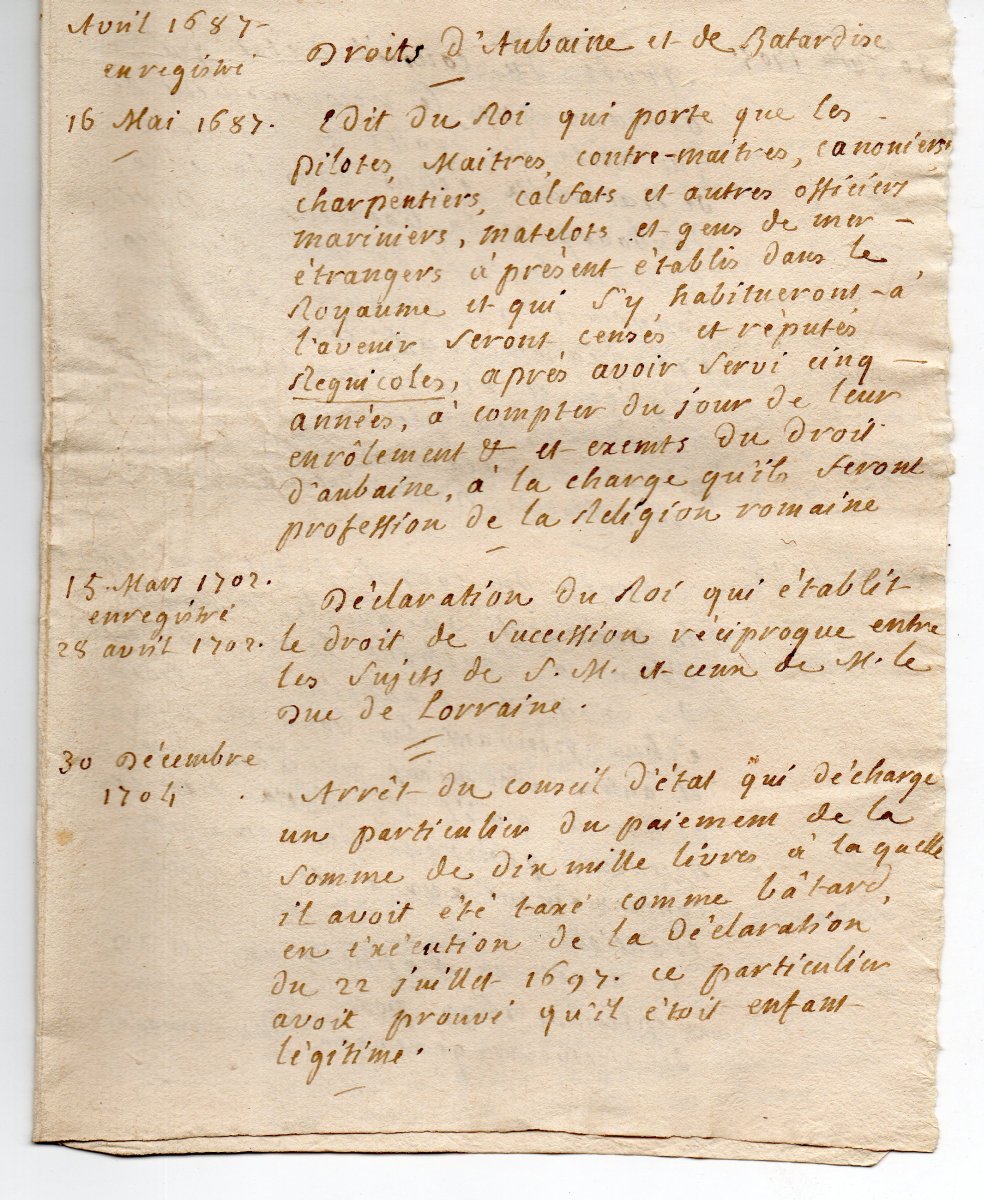 Avril 1687
enregistré
16 Mai 1687.
Droits d'Aubaine et de Batardise
Edit du Roi qui porte que les
pilotes, Maitres, contre-maitres, canoniers,
charpentiers, calfats et autres officiers
mariniers, matelots et gens de mer
étrangers à présent établis dans le
Royaume et qui s'y habitueront à
l'avenir seront censés et réputés
Regnicoles, après avoir servi cinq
années, à compter du jour de leur
enrôlement & et exemts du droit
d'aubaine, à la charge qu'ils feront
profession de la Religion romaine
15 Mars 1702.
enregistré
28 avril 1702.
Déclaration du Roi qui établit
le droit de succession réciproque entre
les sujets de S. M. et ceux de M. le
Duc de Lorraine.
30 Décembre
1704
Arrêt du conseil d'état qui décharge
un particulier du paiement de la
somme de dix mille livres à laquelle
il avoit été taxé comme bâtard,
en éxécution de la Déclaration
du 22 juillet 1697. ce particulier
avoit prouvé qu'il étoit enfant
légitime.